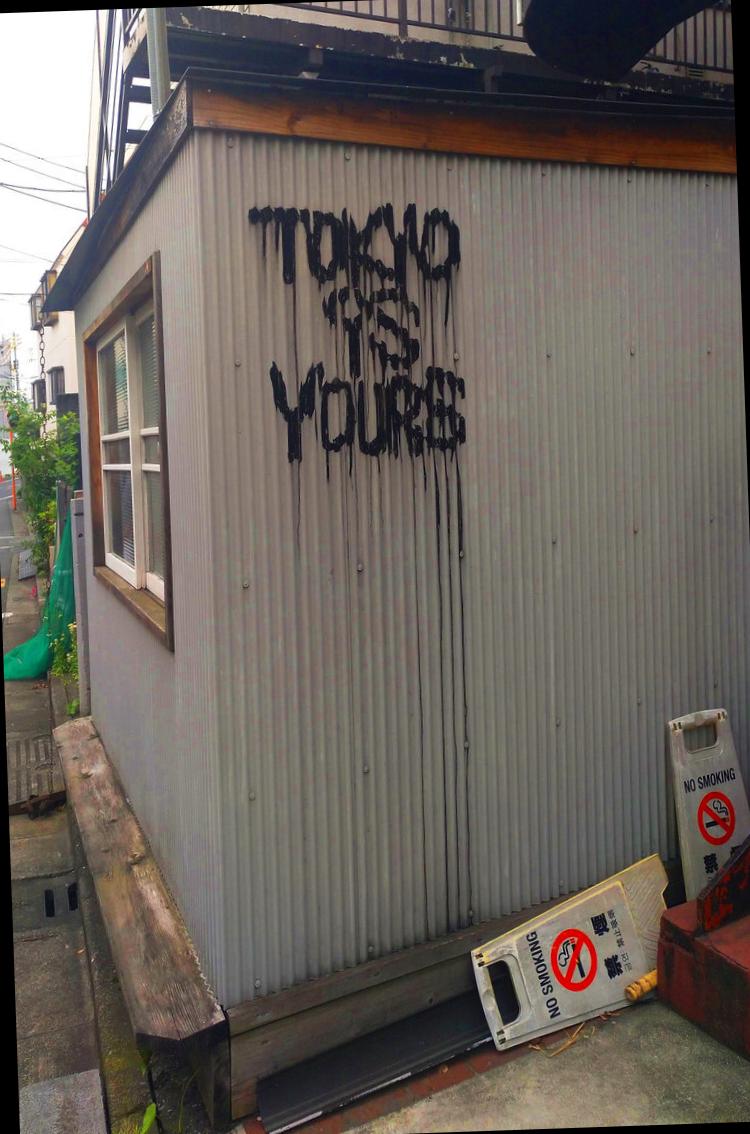 TOKYO
IS
YOURS
NO SMOKING
禁
NO SMOKING
禁煙